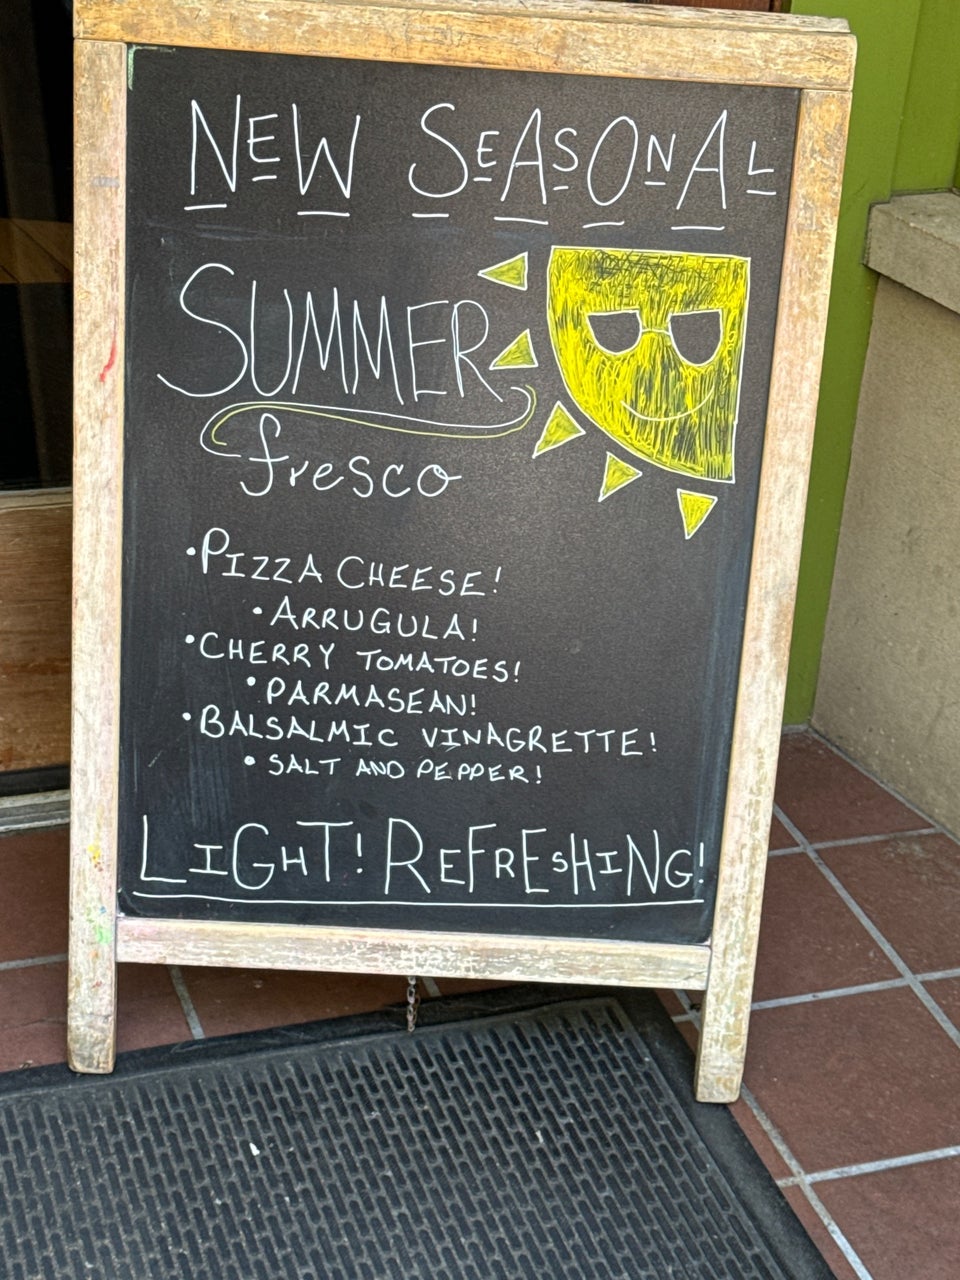 NEW SEASONAL
SUMMER
fresco
•PIZZA CHEESE!
•ARRUGULA!
•CHERRY TOMATOES!
•PARMASEAN!
•BALSALMIC VINAGRETTE!
•SALT AND PEPPER!
LIGHT! REFRESHING!